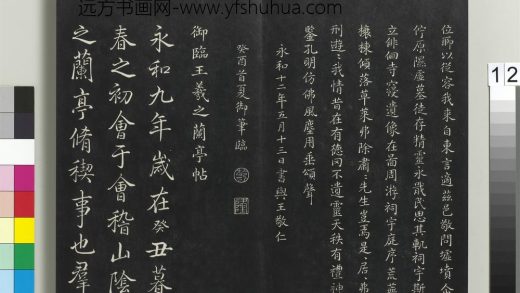 远方书画网-www.yfshuhua.com
位聊以從容我來自東言適茲邑敬問墟墳企
佇原隰虛墓徒存精靈永戢民思其軌祠宇斯
立俳佪寺寑遺像在啚周游祠宇庭序荒蕪
榱棟傾落草萊弗除肅〻先生豈焉是居〻弗
刑遊〻我情昔在有德罔不遺靈天秩有禮神
鑒孔明仿佛風塵用垂頌聲
永和十二年五月十三日書與王敬仁
癸酉首夏御筆臨
御臨王羲之蘭亭帖
永和九年歲在癸丑暮
春之初會于會稽山陰
之蘭亭脩禊事也羣
12